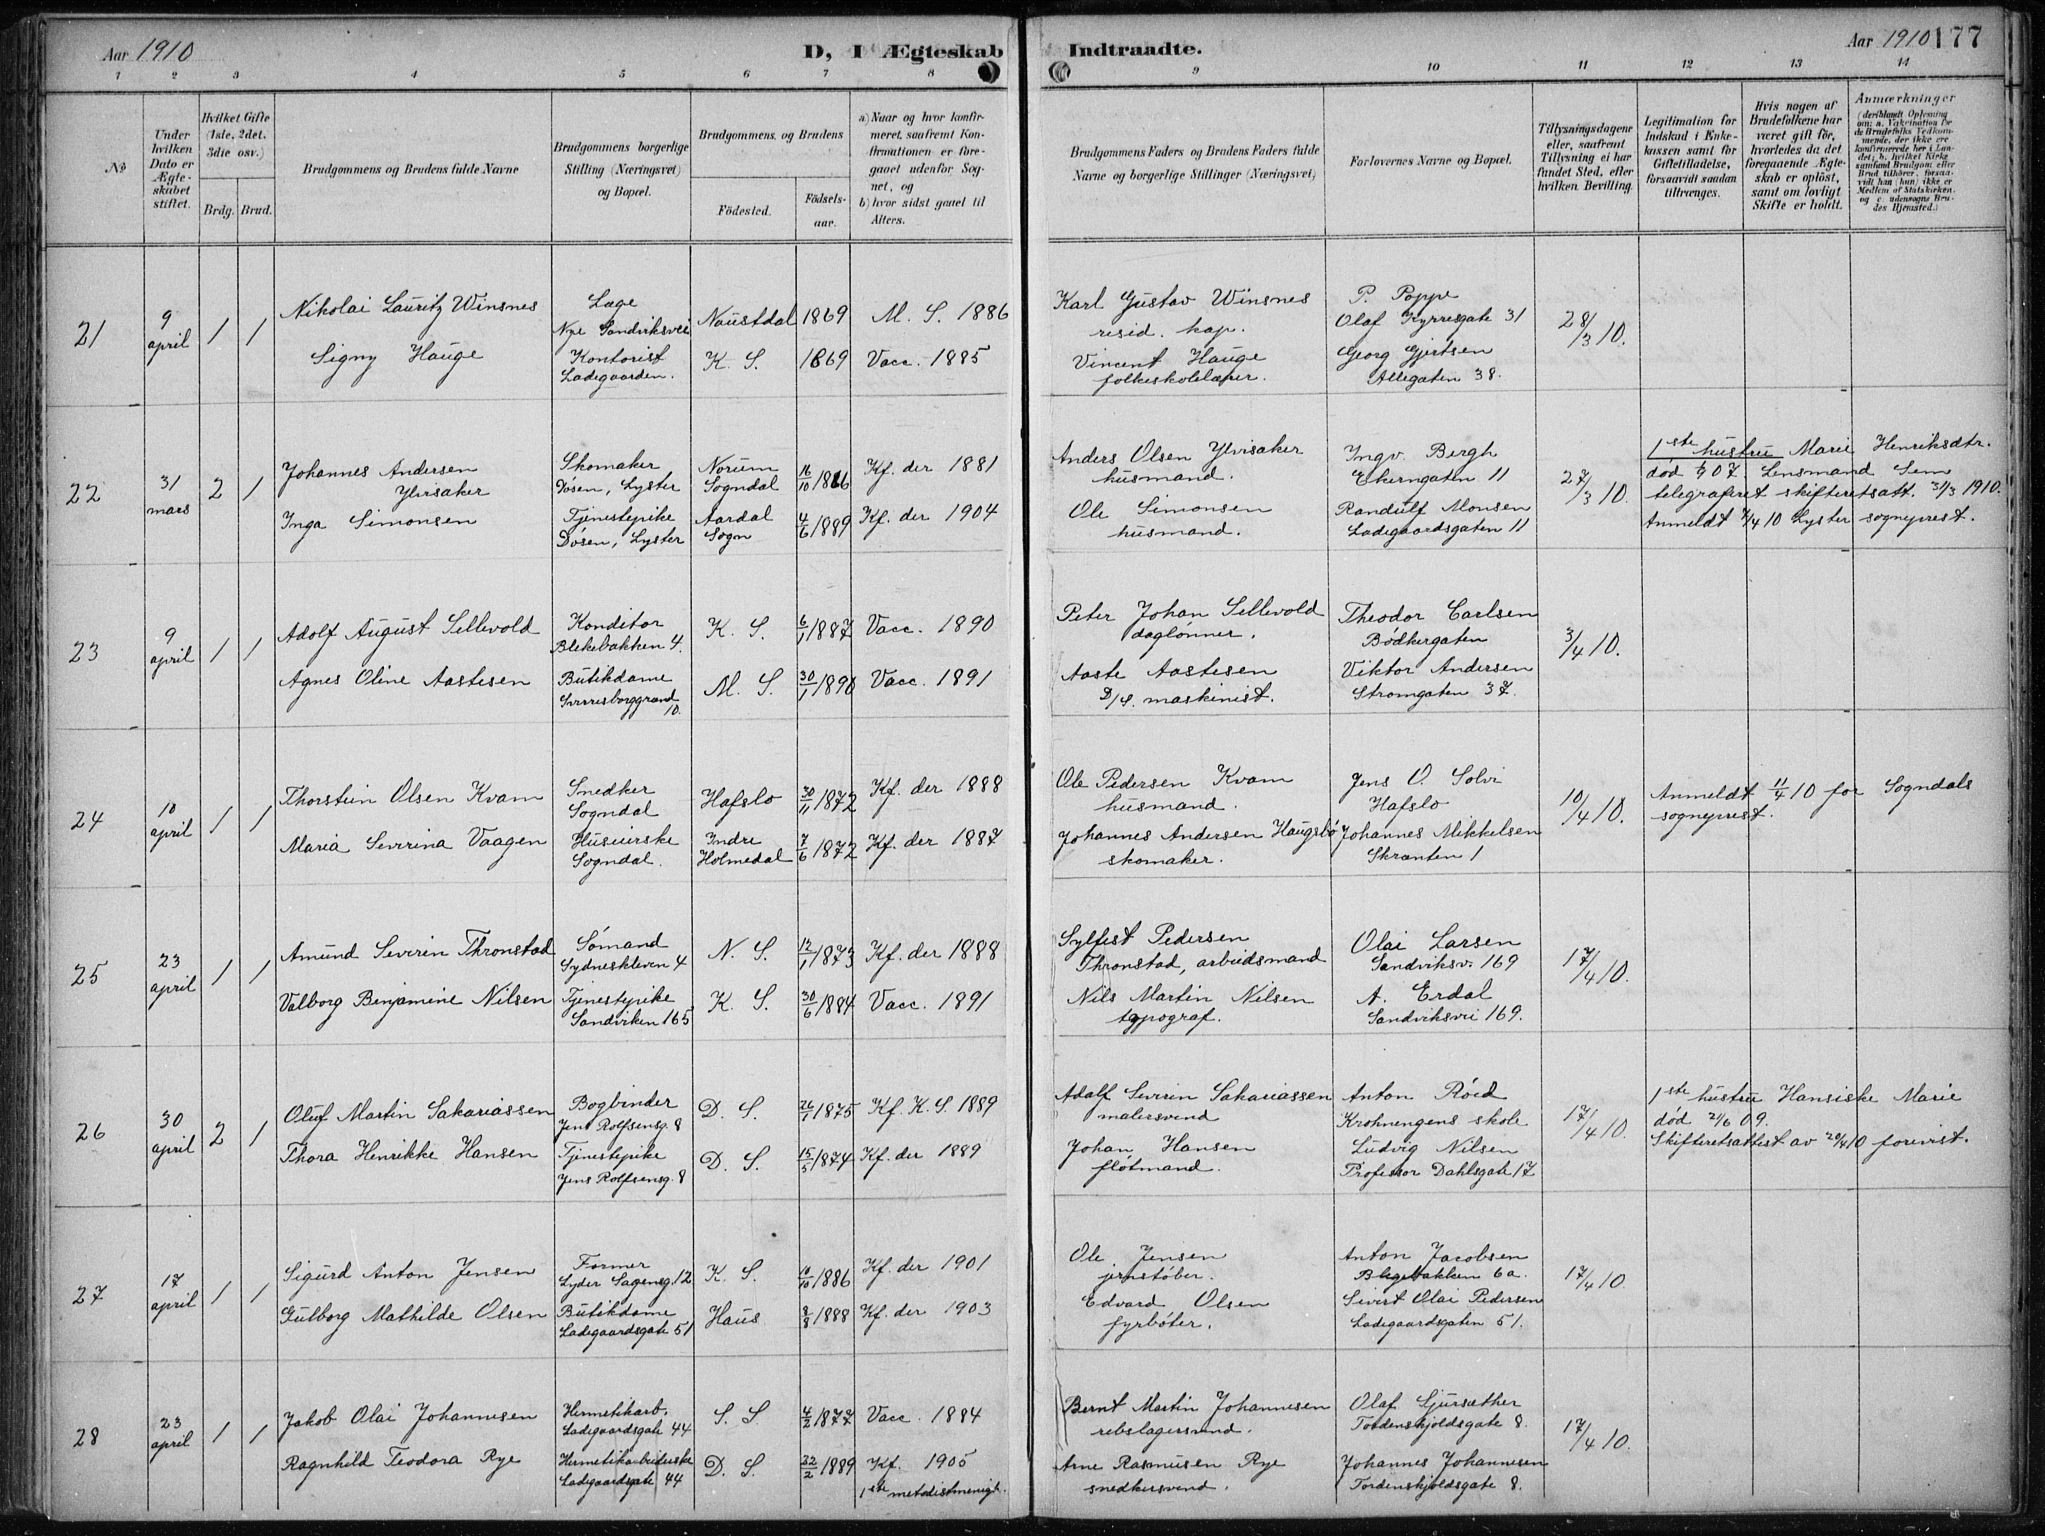 Aar 1910
D, I Ægteskab Indtraadte.
Aar 1910
177
1 2 3 4 5 6 7 8 9 10 11 12 13 14
No
Under hvilken Dato er Ægteskabet stiftet.
Hvilket Gifte (1ste, 2det. 3die osv.)
Brdg. Brud.
Brudgommens og Brudens fulde Navne
Brudgommens borgerlige Stilling (Næringsvei) og Bopæl.
Brudgommens og Brudens
Födested.
Födselsaar.
a) Naar og hvor konfirmeret, saafremt Konfirmationen er foregaaet udenfor Sognet, og
b) hvor sidst gaaet til Alters.
Brudgommens Faders og Brudens Faders fulde Navne og borgerlige Stillinger (Næringsvei)
Forlovernes Navne og Bopæl.
Tillysningsdagene eller, saafremt Tillysning ei har fundet Sted, efter hvilken Bevilling.
Legitimation for Indskud i Enkekassen samt for Giftetilladelse, forsaavidt saadan tiltrænges.
Hvis nogen af Brudefolkene har været gift för, hvorledes da det foregaaende Ægteskab er oplöst, samt om lovligt Skifte er holdt.
Anmærkninger
(deriblandt Oplysning om: a. Vakcination for de Brudefolks Vedkommende, der ikke ere konfirmerede her i Landet; b. hvilket Kirkesamfund Brudgom eller Brud tilhörer, forsaavidt han (hun) ikke er Medlem af Statskirken. og c. udensogns Brudes Hjemsted.)
21
9 april
1 1
Nikolai Lauritz Winsnes
Læge
Nye Sandviksvei
Naustdal 1869 M. S. 1886
Karl Gustav Winsnes
resid. kap.
P. Poppe
Olaf Kyrresgate 31
28/3 10.
Signy Hauge
Kontorist
Ladegaarden.
K. S. 1869 Vacc. 1885
Vincent Hauge
folkeskolelærer.
Georg Gjertsen
Allegaten 38.
22
31 mars
2 1
Johannes Andersen
Ylvisaker
Skomaker
Døsen, Lyster
Norum
Sogndal
16/10 1866 Kf. der 1881
Anders Olsen Ylvisaker
husmand.
Ingv. Bergh
Ekerngaten 11
27/3 10.
1ste hustru Marie Henriksdtr.
død 07. Lensmand Sem
telegraferet skifteretsatt. 31/3 1910.
Anmeldt 7/4 10 Lyster sogneprest.
Inga Simonsen
Tjenestepike
Døsen, Lyster
Aardal
Sogn
4/6 1889 Kf. der 1904
Ole Simonsen
husmand.
Randulf Monsen
Ladegaardsgaten 11
23
9 april
1 1
Adolf August Sellevold
Konditor
Blekebakken 4.
K. S. 6/1 1887 Vacc. 1890
Peter Johan Sellevold
daglønner.
Theodor Carlsen
Bødkergaten
3/4 10.
Agnes Oline Aastesen
Butikdame
Sverresborggrand
10.
M. S. 30/1 1890 Vacc. 1891
Aaste Aastesen
D/S. maskinist.
Viktor Andersen
Strømgaten 37.
24
10 april
1 1
Thorstein Olsen Kvam
Snedker
Sogndal
Hafslo 30/11 1872 Kf. der 1888
Ole Pedersen Kvam
husmand.
Jens O. Solvi
Hafslo
10/4 10.
Anmeldt 11/4 10 for Sogndals
sogneprest.
Maria Severina Vaagen
Huseierske
Sogndal.
Indre
Holmedal
7/6 1872 Kf. der 1887
Johannes Andersen Haugsbø
skomaker.
Johannes Mikkelsen
Skrænten 1
25
23 april
1 1
Amund Severin Thronstad
Sømand
Sydneskleven 4
N. S. 12/1 1873 Kf. der 1888
Sylfest Pedersen
Thronstad, arbeidsmand
Olai Larsen
Sandviksv. 169
17/4 10.
Valborg Benjamine Nilsen
Tjenestepike
Sandviken 165
K. S. 30/6 1884 Vacc. 1891
Nils Martin Nilsen
typograf.
A. Erdal
Sandviksvei 169.
26
30 april
2 1
Oluf Martin Sakariassen
Bogbinder
Jens Rolfsensg. 8
D. S. 26/1 1875 Kf. K. S. 1889
Adolf Severin Sakariassen
malersvend
Anton Røed
Krohnengens skole
17/4 10.
1ste hustru Hansiske Marie
død 2/6 09.
Skifteretsattest av 20/4 10 forevist.
Thora Henrikke Hansen
Tjenestepike
Jens Rolfsensg. 8
D. S. 15/5 1874 Kf. der 1889
Johan Hansen
fløtmand.
Ludvig Nilsen
Professor Dahlsgate 17
27
17 april
1 1
Sigurd Anton Jensen
Former
Lyder Sagensg. 12
K. S. 10/10 1886 Kf. der 1901
Ole Jensen
jernstøber.
Anton Jacobsen
Blegebakken 6a.
17/4 10.
Gulborg Mathilde Olsen
Butikdame
Ladegaardsgate 51
Haus 8/8 1888 Kf. der 1903
Edvard Olsen
fyrbøter.
Sivert Olai Pedersen
Ladegaardsgaten 51.
28
23 april
1 1
Jakob Olai Johannesen
Hermetikarb.
Ladegaardsgate 44
S. S. 4/2 1877 Vacc. 1884
Bernt Martin Johannesen
rebslagersvend.
Olaf Sjursæther
Tordenskjoldsgate 8.
17/4 10.
Ragnhild Teodora Rye
Hermetikarbeiderske
Ladegaardsgate 44
D. S. 22/2 1889 Kf. 1905
1ste metodistmenigt.
Arne Rasmusen Rye
snedkersvend.
Johannes Johannesen
Tordenskjoldsgate 8.